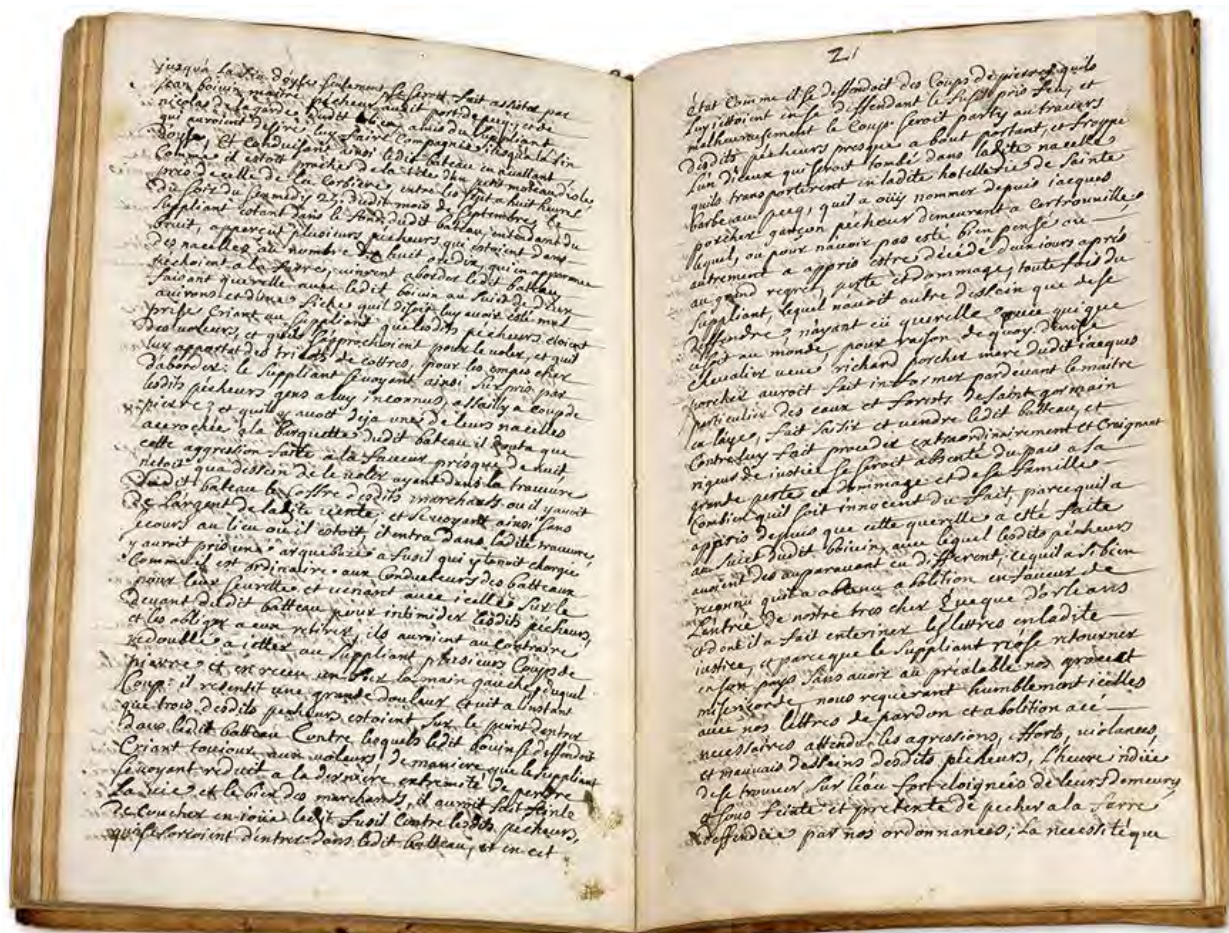 jusqu'a la fin d'oyse seulement se seroit fait assister par
jean boivin maitre pécheur audit port de pecq; et de
nicolas de la garde dudit lieu amis du suppliant
qui auroient desiré luy faire compagnie jusqu'a la fin
doyse, Et Conduisant ainsi ledit bateau en avallant
Comme il estoit proche de la tête d'un petit moteau d'isle
pres de celle de la Corbiere, entre les sept a huit heures
du soir du samedy 25 dudit mois de Septembre, le
Suppliant estant dans le fonds dudit bateau, entendant du
bruit, apperceut plusieurs pécheurs qui estoient dans
des nacelles au nombre de huit ou dix, qui en apparance
péchoient a la farre, vinrent aborder ledit bateau
faisant querelle avec ledit boivin au sujet de deux
avirons et d'une fiche quil disoit luy avoir esté mal
prise Criant au Suppliant que lesdits pécheurs étoient
des voleurs, et quils s'approchoient pour le voler, et quil
luy apportat des tricots de cottrés, pour les empescher
d'aborder: le Suppliant se voyant ainsi surpris par
lesdits pécheurs gens a luy inconnus, assailly a coup de
pierre; et quil y avoit deja une de leurs nacelles
accrochée a la barquette dudit bateau il douta que
cette aggression faite a la faveur presque de nuit
n'etoit qu'a dessein de le voler ayant dans la travure
dudit bateau le coffre desdits marchands ou il y avoit
de l'argent de ladite vente; et se voyant ainsi sans
secours au lieu ou il estoit, il entra dans ladite travure,
y auroit pris une arquebuze a fusil qui y tenoit chargée
Comme il est ordinaire aux Conducteurs des batteaux
pour leur seureté et venant avec icelle sur le
devant dudit batteau pour intimider lesdits pécheurs,
et les obliger a eux retirer, ils auroient au contraire
redoublé a jetter au Suppliant plusieurs Coups de
pierre et en receu un sur la main gauche, duquel
Coup il resentit une grande douleur et vit a l'instant
que trois desdits pecheurs estoient sur le point d'entrer
dans ledit batteau Contre lesquels ledit boivin se deffendoit
Criant toujour aux voleurs, de maniere que le suppliant
se voyant reduit a la derniere extremité de perdre
la vie et le bien des marchands, il auroit fait feinte
de coucher en joüe ledit fusil Contre lesdits pecheurs,
qui s'efforcoient d'entrer dans ledit batteau, et en cet
21
état Comme il se deffendoit des Coups de pierres quils
luy jettoient en se deffendant le fusil pris feu, et
malheureusement le Coup seroit party au travers
desdits pécheurs presque a bout portant, et froppé
l'un d'ceux qui seroit tombé dans ladite nacelle
quils transporterent en ladite hotellerie de Sainte
barbe au pecq, quil a oüy nommer depuis jacques
porcher garçon pécheur demeurant a Cortrouville
lequel, ou pour n'avoir pas esté bien pensé ou
autrement a appris estre décédé deux jours aprés
au grand regret, perte et dommage, toute fois du
suppliant, lequel n'avoit autre dessein que de se
deffendre; n'ayant eü querelle avec qui que
ce soit au monde, pour raison de quoy, denise
Chevalier veuve richard porcher mere dudit jacques
porcher auroit fait informer pardevant le maitre
particulier des eaux et forrets de Saint germain
en laye, fait saisir et vendre ledit batteau, et
Contre luy fait proceder extraordinairement et Craignant
rigeur de justice se seroit absenté du païs a sa
grande perte en dommage et de sa famille
Combien quil soit innocent du fait, parce quil a
appris depuis que cette querelle a esté faite
au sujet dudit boivin, avec lequel lesdits pécheurs
avoient des auparavant eu different, ce quil a si bien
reconnu quil a obtenu abolition en faveur de
L'entrée de nostre tres cher Eveque d'orleans
et dont il a fait enteriner les lettres en ladite
justice, et parce que le suppliant n'ose retourner
en son pays sans avoir au préalable nos graces et
misericorde, nous requerant humblement icelles
avec nos lettres de pardon et abolition a ce
necessaires attendu les agressions, efforts, violances,
et mauvais desseins desdits pécheurs, L'heure indüe
de se trouver sur l'eau fort eloignées de leurs demeures
& sous feinte et pretexte de pecher a la farre
deffendüe par nos ordonnances; La necessité que